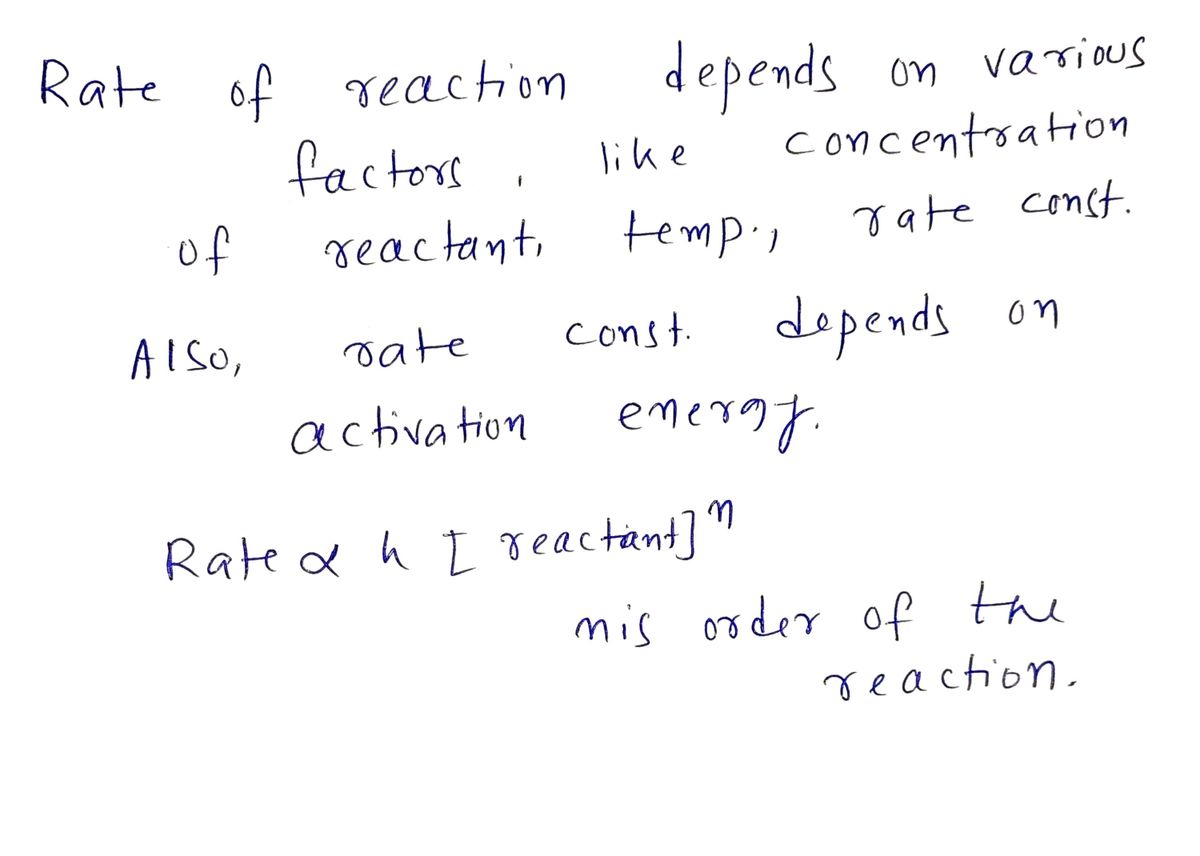 Rate of reaction depends on various
factors, like concentration
of reactant, temp., rate const.
Also, rate const. depends on
activation energy.
Rate ∝ k [reactant]ⁿ
n is order of the
reaction.